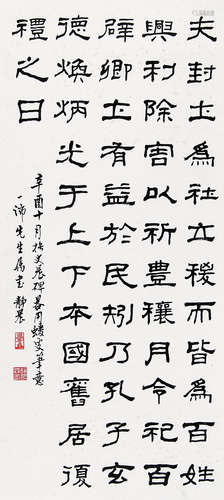 夫封土為社立稷而祀皆為百姓
興利除害以祈豐穰月令祀百
辟卿士有益於民矧乃孔子玄
德煥炳光于上下本國舊居復
禮之日
辛酉十月撫史晨碑畧用蝯叟筆意
一沛先生屬書 靜農